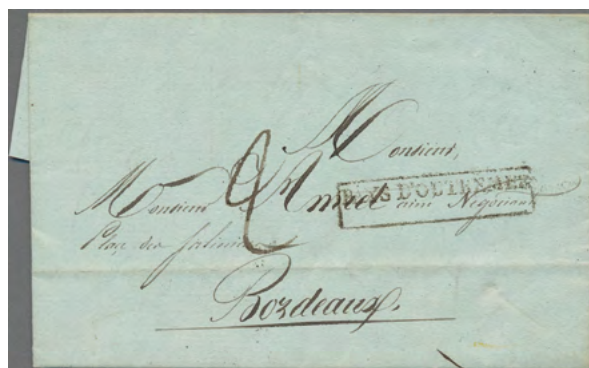 Monsieur,
Monsieur Amiel ainé Négociant
PAYS D'OUTREMER
Place des Salinières
2
Bordeaux.